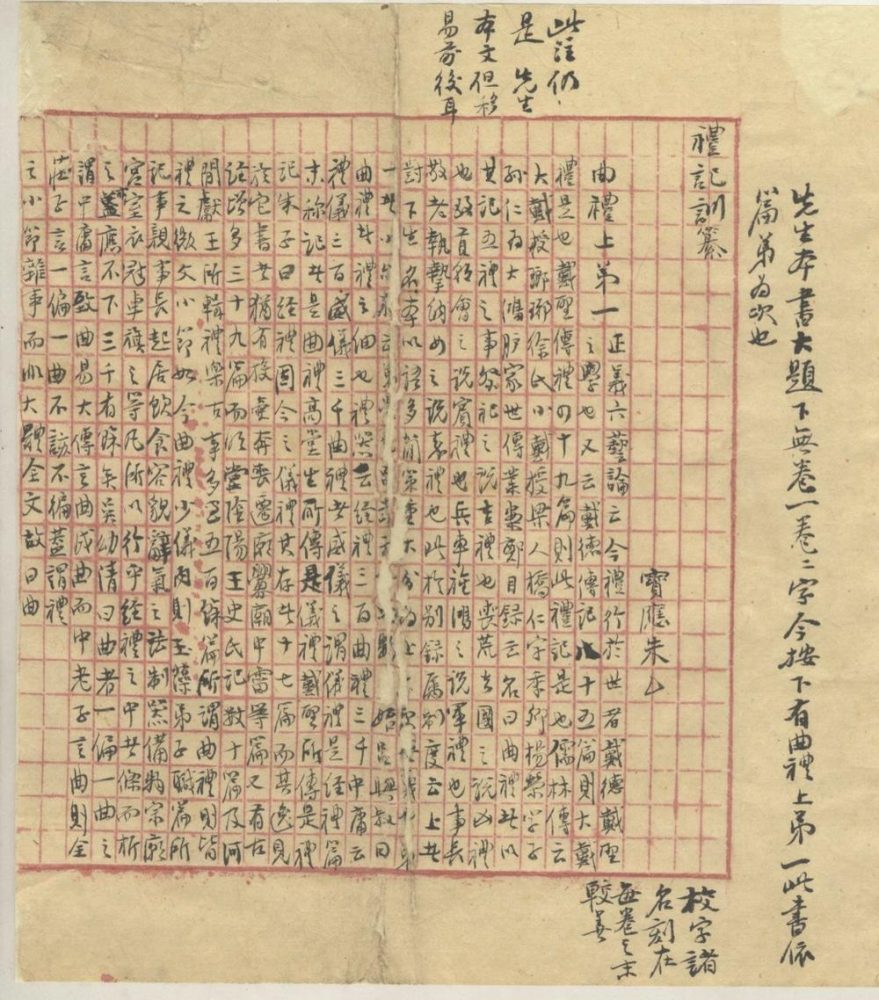 先生本書大題下無卷一卷二字今按下有曲禮上弟一此書依
篇弟為次也
此注仍
是 先生
本文但移
易前後耳
禮記訓纂
寶應朱
曲禮上弟一
正義六藝論云今禮行於世者戴德戴聖
之學也又云戴德傳記八十五篇則大戴
禮是也戴聖傳禮四十九篇則此禮記是也儒林傳云
大戴授琅琊徐氏小戴授梁人橋仁字季卿楊榮字子
孫仁為大鴻臚家世傳業案鄭目錄云名曰曲禮者以
其記五禮之事祭祀之說吉禮也喪荒去國之說凶禮
也致貢朝會之說賓禮也兵車旌鴻之說軍禮也事長
敬老執摯納女之說嘉禮也此於別錄屬制度云上者
對下生名本以語多簡策重大分為上
曰
曲禮者禮之細也禮器云經禮三百曲禮三千中庸云
禮儀三百威儀三千曲禮者威儀之謂儀禮是經禮篇
末稱記者是曲禮高堂生所傳是儀禮戴聖所傳是禮
記朱子曰經禮固今之儀禮其存者十七篇而其逸見
於它書者猶有投壺奔喪遷廟釁廟中霤等篇又有古
經增多三十九篇而明堂陰陽王史氏記數十篇及河
間獻王所輯禮樂古事多至五百餘篇所謂曲禮則皆
禮之微文小節如今曲禮少儀內則玉藻弟子職篇所
記事親事長起居飲食容貌辭氣之法制器備物宗廟
宮室衣冠車旗之等凡所以行乎經禮之中者條而析
之蓋應不下三千有餘矣吳幼清曰曲者一偏一曲之
謂中庸言致曲易大傳言曲成曲而中老子言曲則全
莊子言一偏一曲不該不徧蓋謂禮
之小節雜事而非大體全文故曰曲
校字諸
名刻在
每卷之末
較善